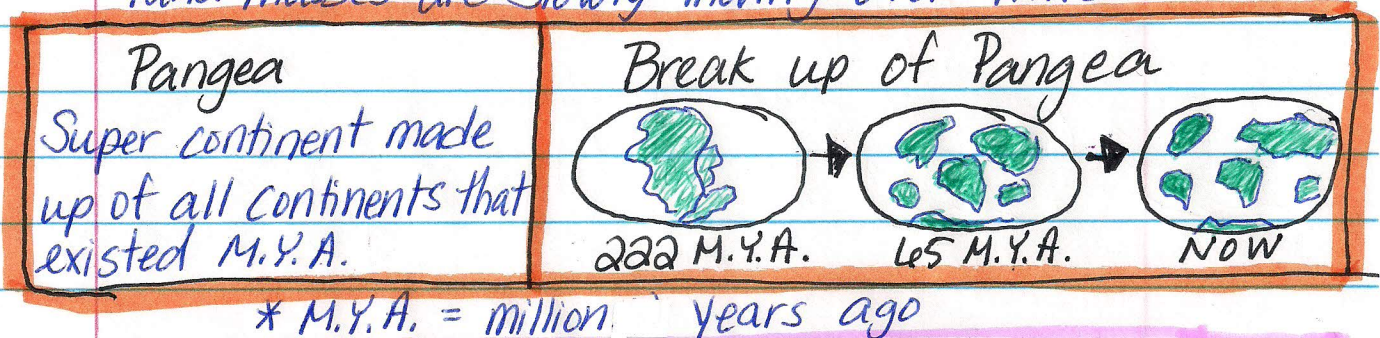 Pangea
Super continent made
up of all continents that
existed M.Y.A.
Break up of Pangea
222 M.Y.A.
65 M.Y.A.
NOW
* M.Y.A. = million years ago